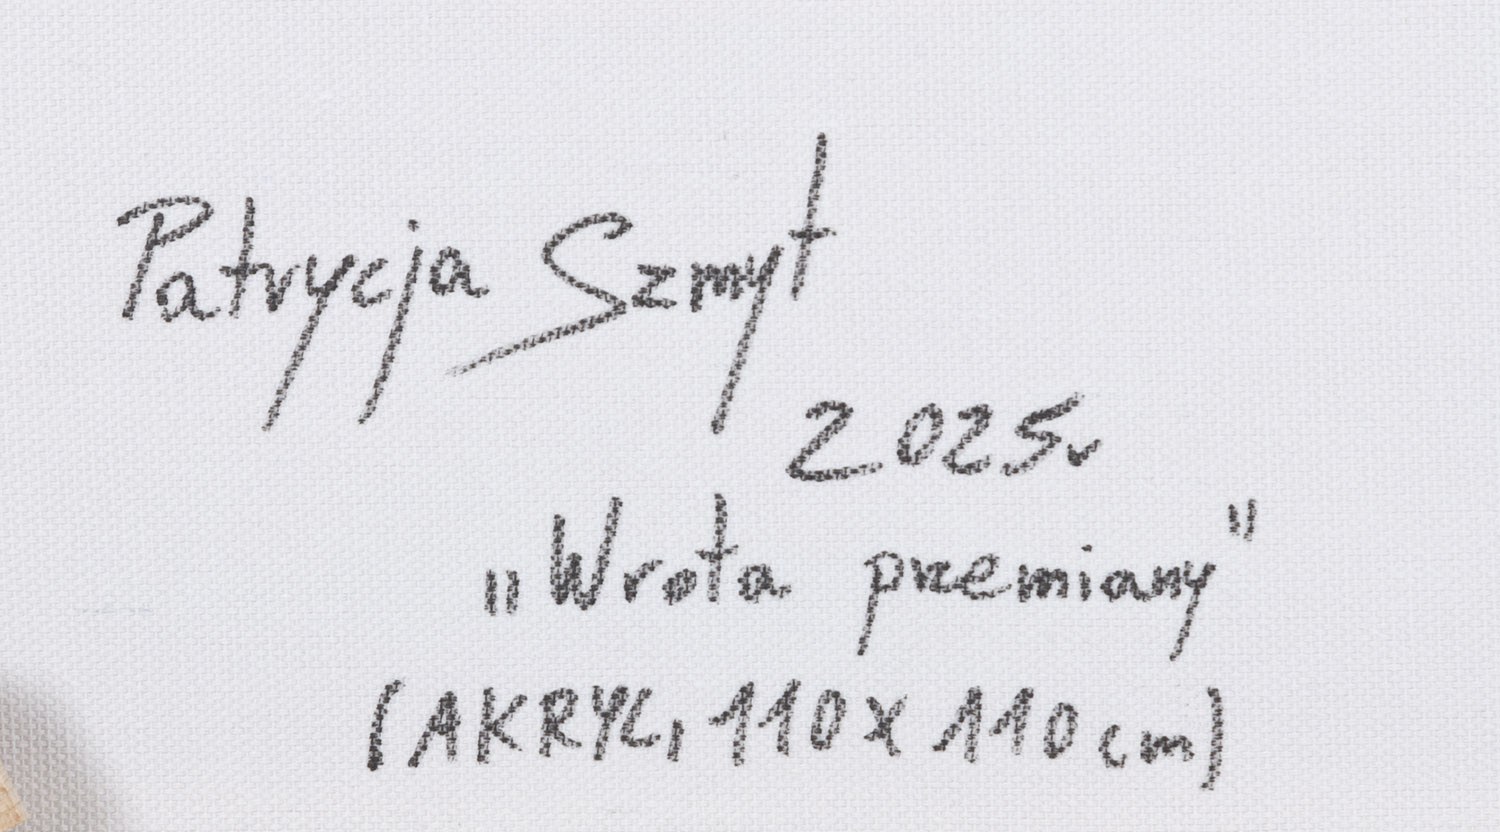 Patrycja Szmyt
2025r
„Wrota przemiany"
(AKRYL, 110x110cm)